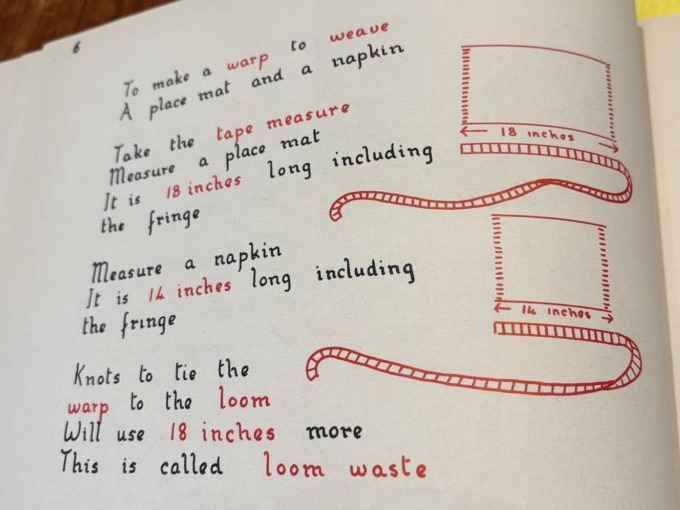 6
To make a warp to weave
A place mat and a napkin
Take the tape measure
Measure a place mat
It is 18 inches long including
the fringe
18 inches
Measure a napkin
It is 14 inches long including
the fringe
14 inches
Knots to tie the
warp to the loom
Will use 18 inches more
This is called loom waste